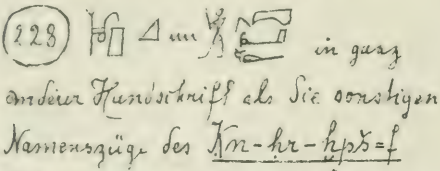 228 im in ganz
anderer Handschrift als die sonstigen
Namenszüge des Ḳn-ḥr-ḫpš=f